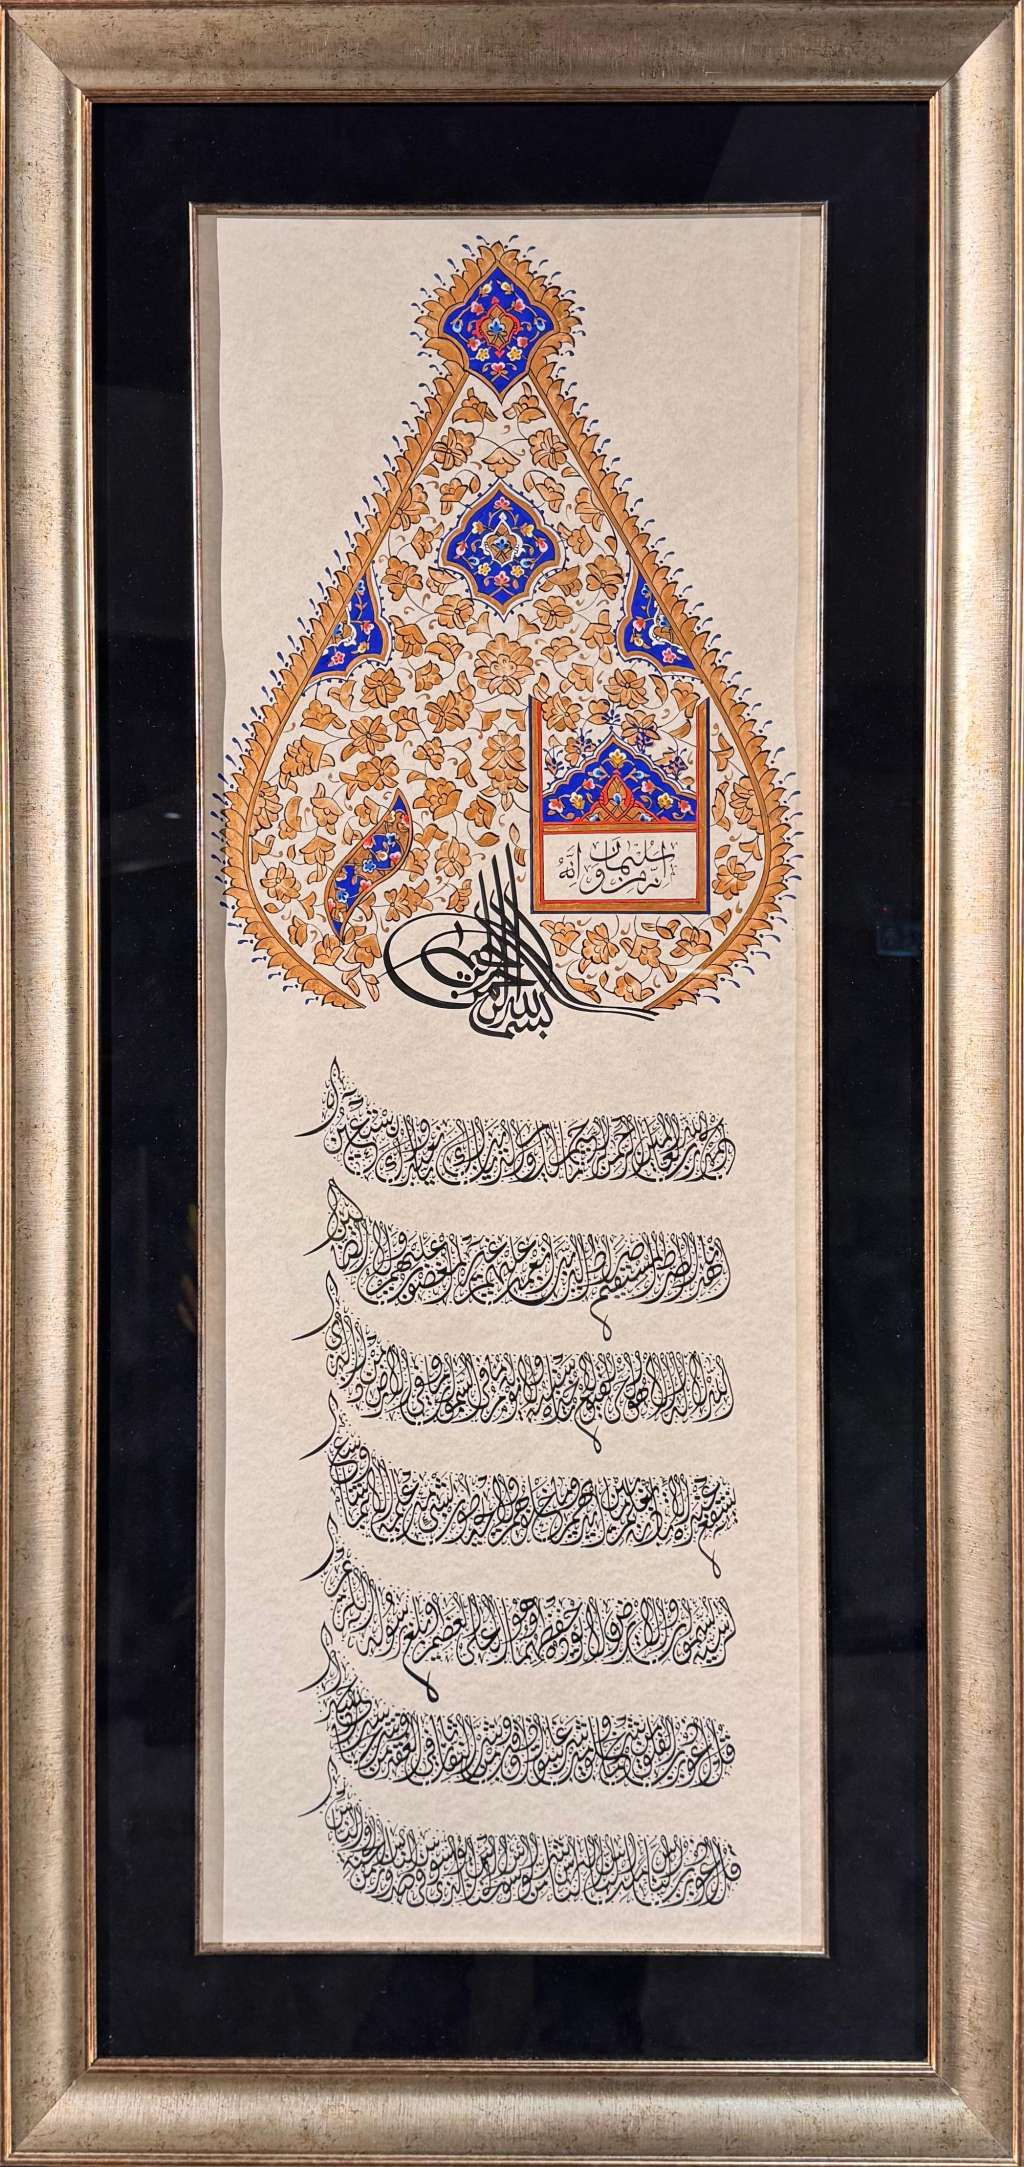 إنه من سليمان وإنه
بسم الله الرحمن الرحيم
الحمد لله رب العالمين الرحمن الرحيم مالك يوم الدين إياك نعبد وإياك نستعين
اهدنا الصراط المستقيم صراط الذين أنعمت عليهم غير المغضوب عليهم ولا الضالين
الله لا إله إلا هو الحي القيوم لا تأخذه سنة ولا نوم له ما في السموات وما في الأرض من ذا الذي
يشفع عنده إلا بإذنه يعلم ما بين أيديهم وما خلفهم ولا يحيطون بشيء من علمه إلا بما شاء وسع
كرسيه السموات والأرض ولا يؤده حفظهما وهو العلي العظيم وبلغ رسوله الكريم
قل أعوذ برب الفلق من شر ما خلق ومن شر غاسق إذا وقب ومن شر النفاثات في العقد ومن شر حاسد إذا حسد
قل أعوذ برب الناس ملك الناس إله الناس من شر الوسواس الخناس الذي يوسوس في صدور الناس من الجنة والناس